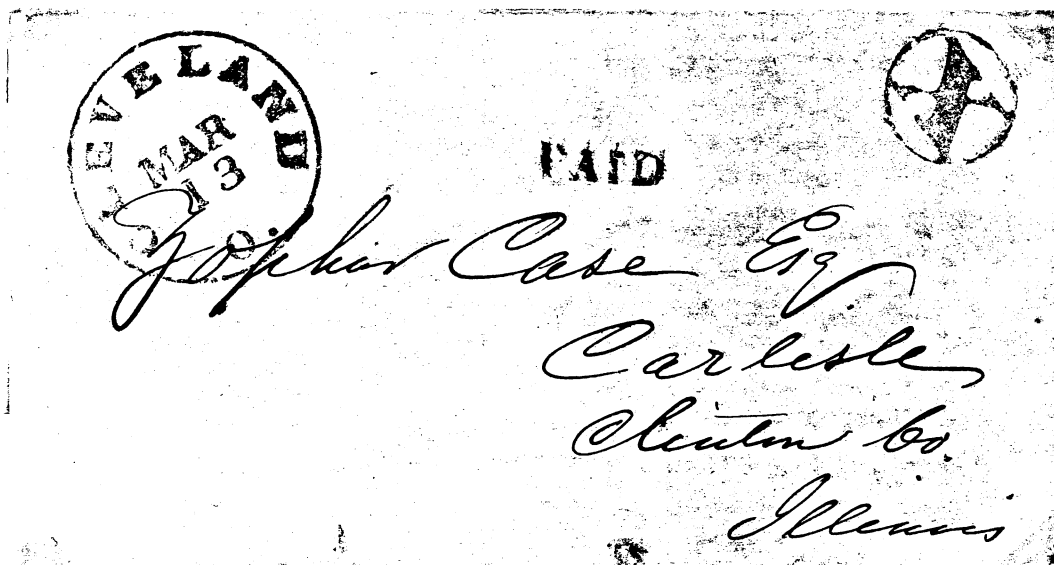 CLEVELAND
MAR
13
O.
PAID
Zophar Case Esq
Carlisle
Clinton Co.
Illinois